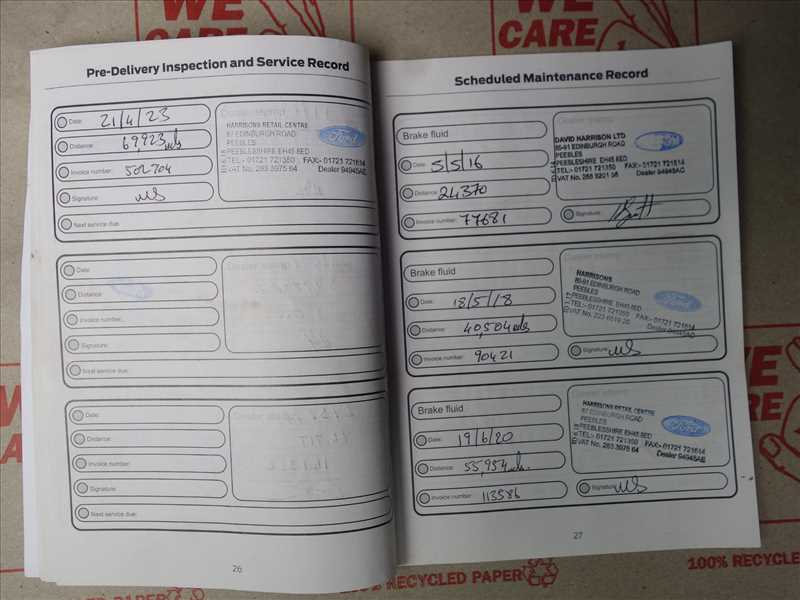 WE
CARE
WE
CARE
Pre-Delivery Inspection and Service Record
Date: 21/4/23
Distance: 69923 mls
Invoice number: 502704
Signature:
Next service due:
HARRISONS RETAIL CENTRE
87 EDINBURGH ROAD
PEEBLES
PEEBLESSHIRE EH45 8ED
TEL:- 01721 721350 FAX:- 01721 721614
VAT No. 283 3975 64 Dealer 94945AE
Ford
Date:
Distance:
Invoice number:
Signature:
Next service due:
Date:
Distance:
Invoice number:
Signature:
Next service due:
26
Scheduled Maintenance Record
Brake fluid
Date: 5/5/16
Distance: 24370
Invoice number: 77681
DAVID HARRISON LTD
85-91 EDINBURGH ROAD
PEEBLES
PEEBLESSHIRE EH45 8ED
TEL:- 01721 721350 FAX:- 01721 721614
VAT No. Dealer 94945AC
Signature:
Brake fluid
Date: 18/5/18
Distance: 40,504 mls
Invoice number: 90421
HARRISONS
85-91 EDINBURGH ROAD
PEEBLES
PEEBLESSHIRE EH45 8ED
TEL:- 01721 721350 FAX:- 01721 721614
VAT No. Dealer 94945AC
Signature:
Brake fluid
Date: 19/6/20
Distance: 55,954 mls.
Invoice number: 113586
HARRISONS RETAIL CENTRE
87 EDINBURGH ROAD
PEEBLES
PEEBLESSHIRE EH45 8ED
TEL:- 01721 721350 FAX:- 01721 721614
VAT No. 283 3975 64 Dealer 94945AE
Ford
Signature:
27
WE
CARE
100% RECYCLED PAPER
100% RECYCLED